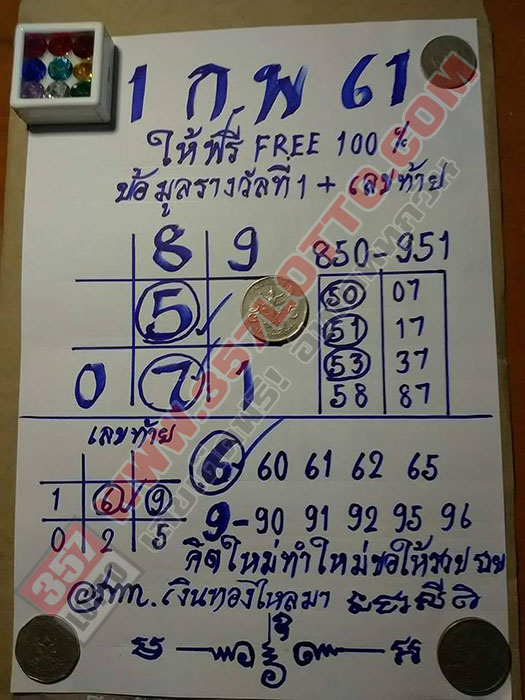 1 ก พ 61
ให้ฟรี FREE 100 %
ข้อมูลรางวัลที่1 + เลขท้าย
8 9 850-951
5 50 07
51 17
0 7 1 53 37
58 87
เลขท้าย
6 - 60 61 62 65
1 6 9
0 2 5
9 - 90 91 92 95 96
คิดใหม่ทำใหม่ขอให้รวย รวย
เงินทองไหลมา
WWW.357LOTTO.COM
357